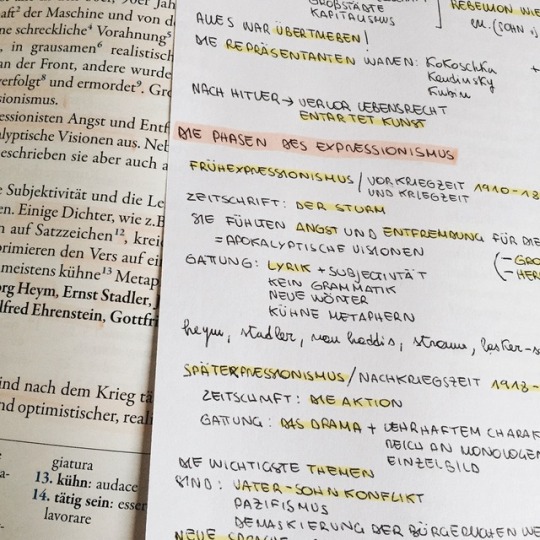 der Maschine und von d
ne schreckliche⁴ Vorahnung⁵
, in grausamen⁶ realistisch
an der Front, andere wurde
verfolgt⁸ und ermordet⁹. Gro
sionismus.
essionisten Angst und Entf
alyptische Visionen aus. Neb
eschrieben sie aber auch a
e Subjektivität und die Le
en. Einige Dichter, wie z.B.
n auf Satzzeichen¹², kreie
primieren den Vers auf ein
meistens kühne¹³ Metap
org Heym, Ernst Stadler, J
lfred Ehrenstein, Gottfri
ind nach dem Krieg tä
nd optimistischer, reali
giatura
13. kühn: audace
14. tätig sein: esser
lavorare
GROßSTÄDTE
KAPITALISMUS
REBELLION WIE
ALLES WAR ÜBERTRIEBEN!
DIE REPRÄSENTANTEN WAREN: KOKOSCHKA +
Kandinsky
Kubin
NACH HITLER → VERLOR LEBENSRECHT
ENTARTET KUNST
DIE PHASEN DES EXPRESSIONISMUS
FRÜHEXPRESSIONISMUS / VORKRIEGZEIT 1910-18
UND KRIEGZEIT
ZEITSCHRIFT: DER STURM
SIE FÜHLTEN ANGST UND ENTFREMDUNG FÜR DIE
= APOKALYPTISCHE VISIONEN
(- GRO
(- HER
GATTUNG: LYRIK + SUBJEKTIVITÄT
KEIN GRAMMATIK
NEUE WÖRTER
KÜHNE METAPHERN
heym, stadler, van hoddis, stramm, lasker-s
SPÄTERPRESSIONISMUS / NACHKRIEGSZEIT 1918-
ZEITSCHIFT: DIE AKTION
GATTUNG: DAS DRAMA + LEHRHAFTEM CHARAK
REICH AN MONOLOGEN
EINZELBILD
DIE WICHTIGSTE THEMEN
SIND: VATER-SOHN KONFLIKT
PAZIFISMUS
DEMASKIERUNG DER BÜRGERLICHEN WE
NEUE SPRACHE